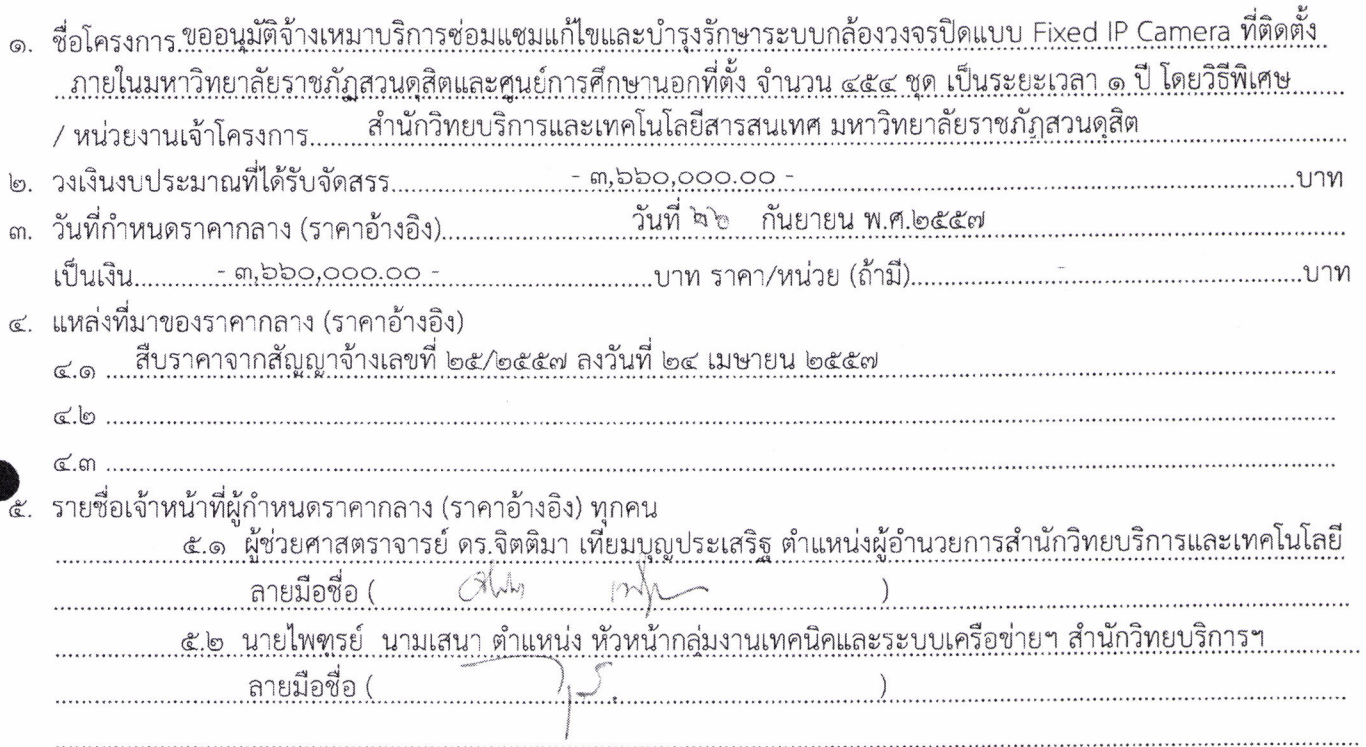 ๑. ชื่อโครงการ ขออนุมัติจ้างเหมาบริการซ่อมแซมแก้ไขและบำรุงรักษาระบบกล้องวงจรปิดแบบ Fixed IP Camera ที่ติดตั้ง
ภายในมหาวิทยาลัยราชภัฏสวนดุสิตและศูนย์การศึกษานอกที่ตั้ง จำนวน ๔๕๔ ชุด เป็นระยะเวลา ๑ ปี โดยวิธีพิเศษ
/ หน่วยงานเจ้าโครงการ สำนักวิทยบริการและเทคโนโลยีสารสนเทศ มหาวิทยาลัยราชภัฏสวนดุสิต
๒. วงเงินงบประมาณที่ได้รับจัดสรร - ๓,๖๖๐,๐๐๐.๐๐ - บาท
๓. วันที่กำหนดราคากลาง (ราคาอ้างอิง) วันที่ ๒๖ กันยายน พ.ศ.๒๕๕๗
เป็นเงิน - ๓,๖๖๐,๐๐๐.๐๐ - บาท ราคา/หน่วย (ถ้ามี) - บาท
๔. แหล่งที่มาของราคากลาง (ราคาอ้างอิง)
๔.๑ สืบราคาจากสัญญาจ้างเลขที่ ๒๕/๒๕๕๗ ลงวันที่ ๒๔ เมษายน ๒๕๕๗
๔.๒
๔.๓
๕. รายชื่อเจ้าหน้าที่ผู้กำหนดราคากลาง (ราคาอ้างอิง) ทุกคน
๕.๑ ผู้ช่วยศาสตราจารย์ ดร.จิตติมา เทียมบุญประเสริฐ ตำแหน่งผู้อำนวยการสำนักวิทยบริการและเทคโนโลยี
ลายมือชื่อ ( )
๕.๒ นายไพฑูรย์ นามเสนา ตำแหน่ง หัวหน้ากลุ่มงานเทคนิคและระบบเครือข่ายฯ สำนักวิทยบริการฯ
ลายมือชื่อ ( )